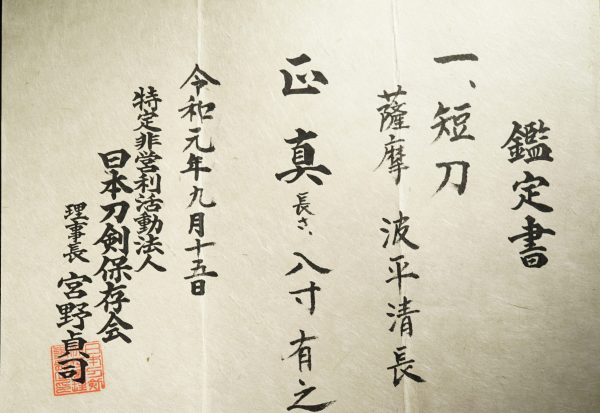 鑑定書
一、短刀
薩摩 波平清長
正真 長さ、八寸有之
令和元年九月十五日
特定非営利活動法人
日本刀剣保存会
理事長 宮野貞司